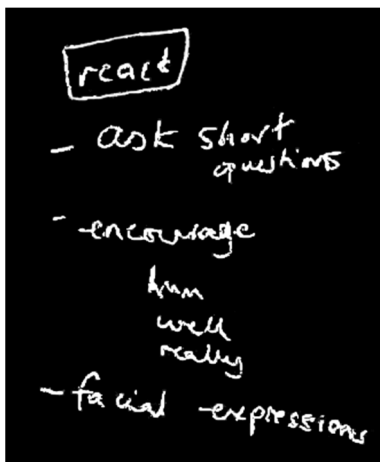 react
- ask short
questions
- encourage
hum
well
really
- facial expressions